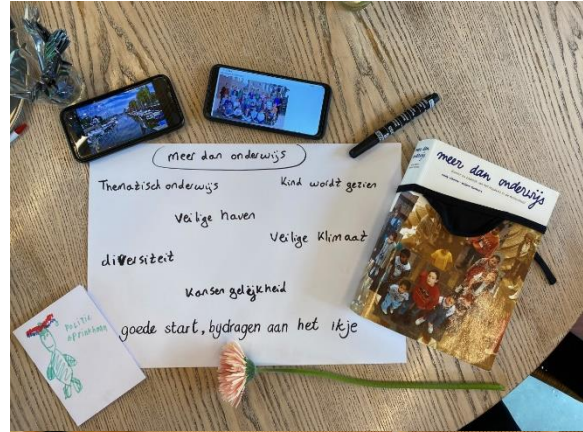 meer dan onderwijs
Thematisch onderwijs
Kind wordt gezien
Veilige haven
Veilige Klimaat
diversiteit
Kansen gelijkheid
goede start, bijdragen aan het ikje
meer dan onderwijs
meer dan onderwijs